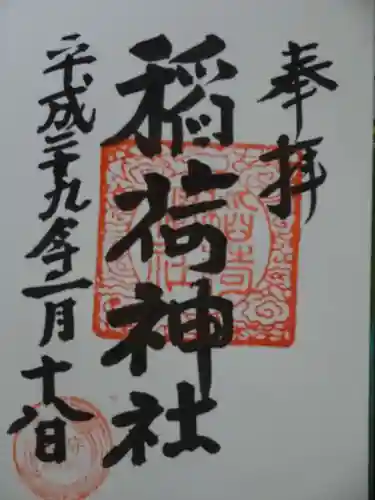 奉拝
稲荷神社
平成二十九年一月十八日